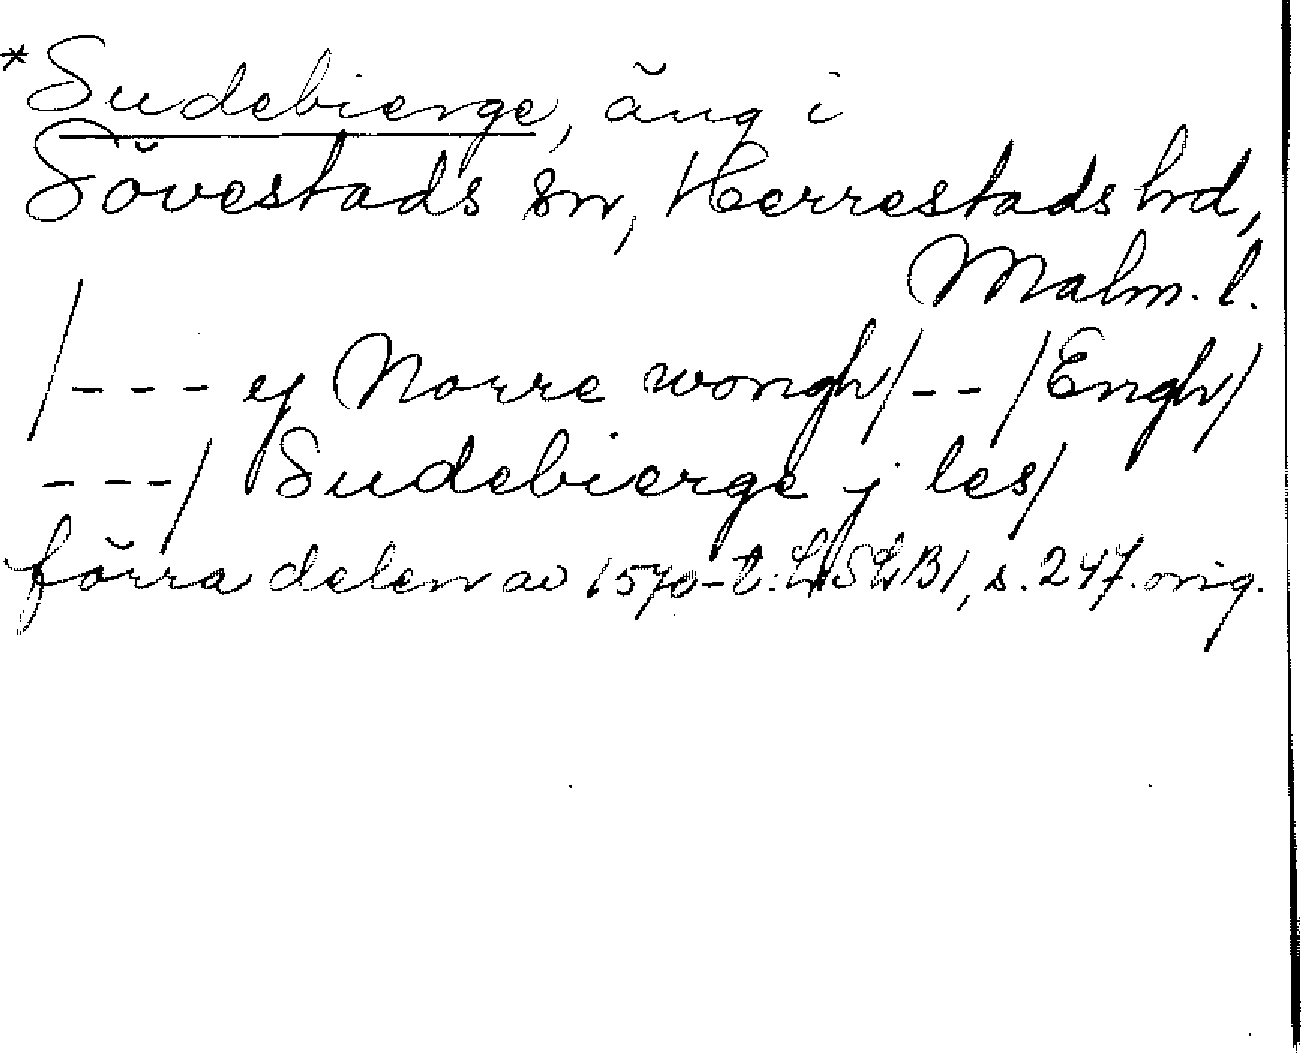 *Sudebierge, äng i
Sövestads sn, Herrestads hd,
Malm. l.
/--- ey Norre wongh/--/Engh/
---/ Sudebierge j les/
förra delen av 1570-t: LSLB1, s. 247. orig.